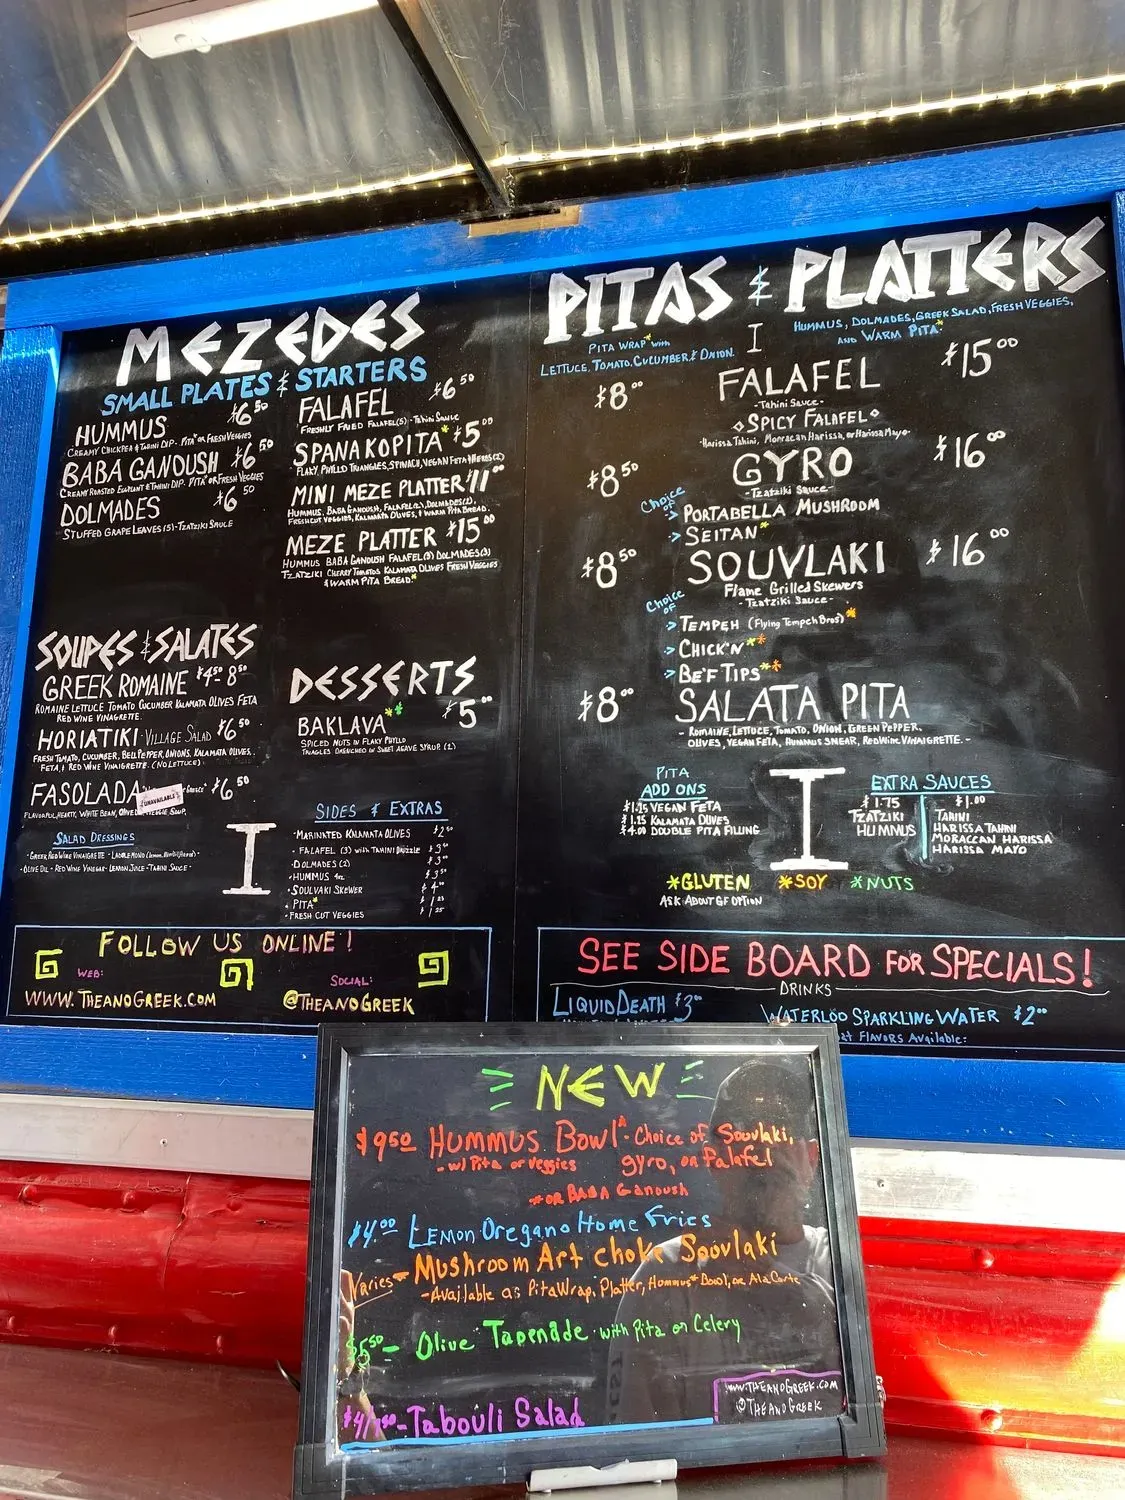 MEZEDES
SMALL PLATES & STARTERS
HUMMUS $6.50
CREAMY CHICKPEA & TAHINI DIP - PITA* OR FRESH VEGGIES
BABA GANOUSH $6.50
CREAMY ROASTED EGGPLANT & TAHINI DIP. PITA* OR FRESH VEGGIES
DOLMADES $6.50
STUFFED GRAPE LEAVES (5) - TZATZIKI SAUCE
FALAFEL $6.50
FRESHLY FRIED FALAFEL (5) - TAHINI SAUCE
SPANAKOPITA* $5.00
FLAKY, PHYLLO TRIANGLES, SPINACH, VEGAN FETA & HERBS (2)
MINI MEZE PLATTER $11.00
HUMMUS, BABA GANOUSH, FALAFEL (2), DOLMADES (2),
FRESH CUT VEGGIES, KALAMATA OLIVES, & WARM PITA BREAD.*
MEZE PLATTER $15.00
HUMMUS BABA GANOUSH FALAFEL (3) DOLMADES (3)
TZATZIKI CHERRY TOMATOS KALAMATA OLIVES FRESH VEGGIES
& WARM PITA BREAD*
SOUPES & SALATES
GREEK ROMAINE $4.50 8.50
ROMAINE LETTUCE TOMATO CUCUMBER KALAMATA OLIVES FETA
RED WINE VINAGRETTE.
HORIATIKI VILLAGE SALAD $6.50
FRESH TOMATO, CUCUMBER, BELL PEPPER, ONIONS, KALAMATA OLIVES,
FETA, & RED WINE VINAIGRETTE. (NO LETTUCE)
FASOLADA UNAVAILABLE $6.50
FLAVORFUL, HEARTY, WHITE BEAN, OLIVE OIL VEGGIE SOUP,
SALAD DRESSINGS
- GREEK RED WINE VINAIGRETTE - LADOLEMONO
- OLIVE OIL - RED WINE VINEGAR - LEMON JUICE - TAHINI SAUCE -
DESSERTS
BAKLAVA** $5.00
SPICED NUTS IN FLAKY PHYLLO
TRIAGLES DRENCHED IN SWEET AGAVE SYRUP (2)
SIDES & EXTRAS
- MARINATED KALAMATA OLIVES $2.50
- FALAFEL (3) WITH TAHINI DRIZZLE $3
- DOLMADES (2) $3
- HUMMUS 4oz $3.50
- SOULVAKI SKEWER $4
- PITA* $1.25
- FRESH CUT VEGGIES $1.25
FOLLOW US ONLINE!
WEB:
WWW.THEANOGREEK.COM
SOCIAL:
@THEANOGREEK
PITAS & PLATTERS
PITA WRAP* WITH
LETTUCE, TOMATO, CUCUMBER & ONION.
HUMMUS, DOLMADES, GREEK SALAD, FRESH VEGGIES,
AND WARM PITA*.
$8.00 FALAFEL $15.00
- TAHINI SAUCE -
◇ SPICY FALAFEL ◇
- HARISSA TAHINI, MORRACAN HARISSA, OR HARISSA MAYO -
$8.50 GYRO $16.00
- TZATZIKI SAUCE -
CHOICE OF
> PORTABELLA MUSHROOM
> SEITAN*
$8.50 SOUVLAKI $16.00
FLAME GRILLED SKEWERS
- TZATZIKI SAUCE -
CHOICE OF
> TEMPEH (Flying Tempeh Bros)*
> CHICK'N**
> BE'F TIPS**
$8.00 SALATA PITA
- ROMAINE, LETTUCE, TOMATO, ONION, GREEN PEPPER,
OLIVES, VEGAN FETA, HUMMUS SMEAR, RED WINE VINAIGRETTE. -
PITA
ADD ONS
$1.25 VEGAN FETA
$1.25 KALAMATA OLIVES
$4.00 DOUBLE PITA FILLING
EXTRA SAUCES
$1.75
TZATZIKI
HUMMUS
$1.00
TAHINI
HARISSA TAHINI
MORACCAN HARISSA
HARISSA MAYO
*GLUTEN *SOY *NUTS
ASK ABOUT GF OPTION
SEE SIDE BOARD FOR SPECIALS!
DRINKS
LIQUID DEATH $3.00
WATERLOO SPARKLING WATER $2.00
FLAVORS AVAILABLE:
NEW
$9.50 HUMMUS BOWL - Choice of Souvlaki,
- w/ Pita or Veggies gyro, or Falafel
* OR BABA Ganoush
$4.00 LEMON OREGANO HOME FRIES
Varies - Mushroom Art choke Souvlaki
- Available as Pita Wrap, Platter, Hummus* Bowl, or Ala Carte
$5.50 - Olive Tapenade with Pita or Celery
- Tabouli Salad
WWW.THEANOGREEK.COM
@THEANOGREEK